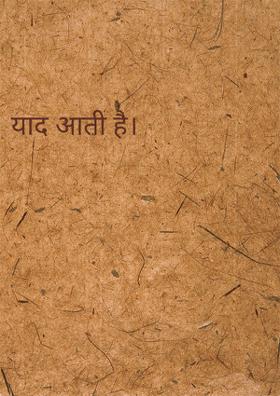 याद आती है।